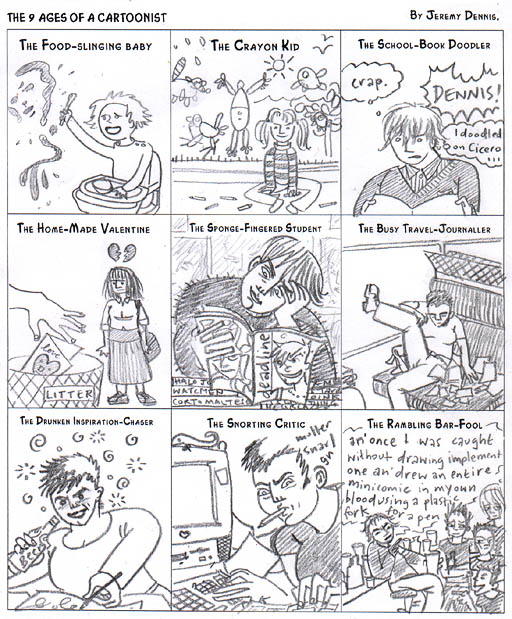 THE 9 AGES OF A CARTOONIST
BY JEREMY DENNIS.
THE FOOD-SLINGING BABY
THE CRAYON KID
THE SCHOOL-BOOK DOODLER
crap.
DENNIS!
I doodled
on Cicero
THE HOME-MADE VALENTINE
LOVE
LITTER
THE SPONGE-FINGERED STUDENT
deadline
HALO JO
WATCHMEN
CORTO MALTES
THE BUSY TRAVEL-JOURNALLER
THE DRUNKEN INSPIRATION-CHASER
BEER
THE SNORTING CRITIC
mutter
snarl
THE RAMBLING BAR-FOOL
an' once I was caught
without drawing implement
one an' drew an entire
minicomic in my own
blood using a plastic
fork for a pen